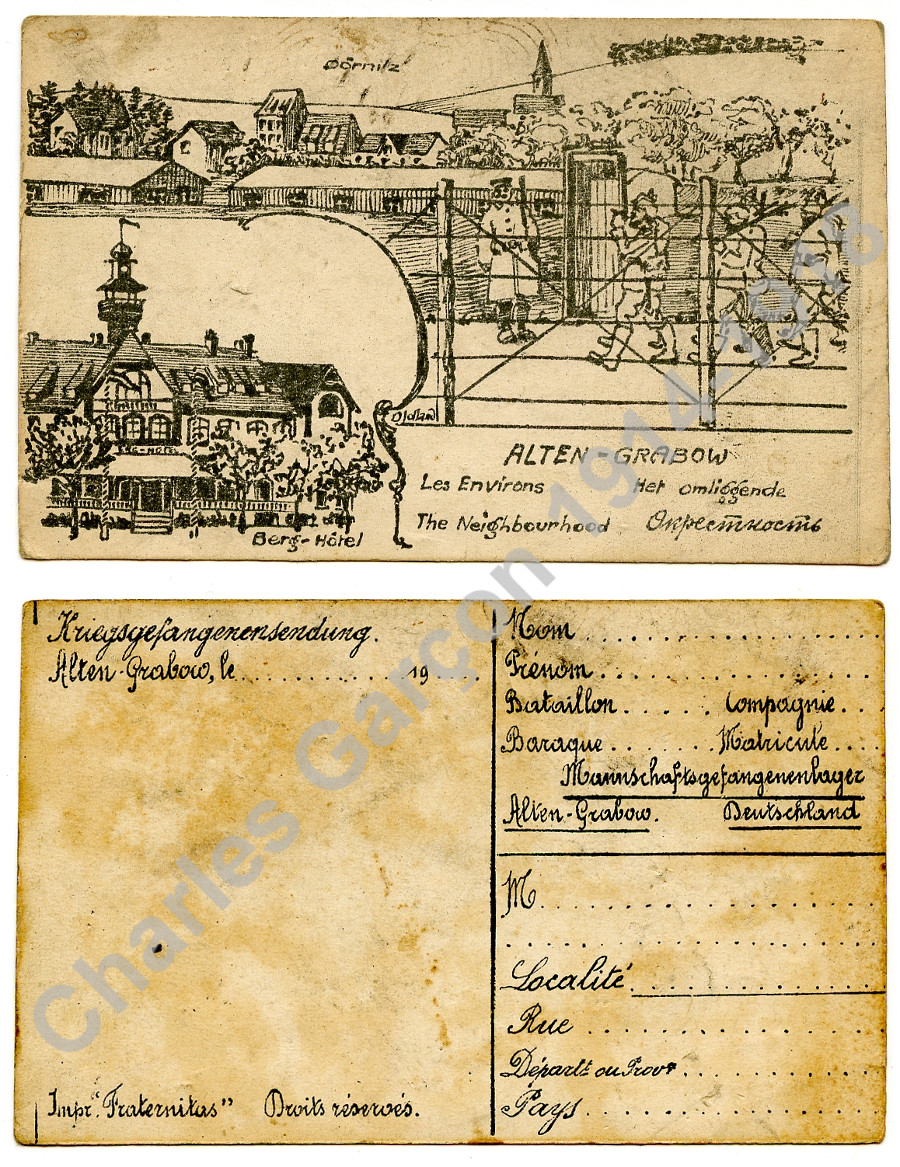 Dörnitz
BERG-HÔTEL
Oldland
ALTEN-GRABOW
Les Environs Het omliggende
The Neighbourhood Окрестность
Berg-Hôtel
Kriegsgefangenensendung.
Alten-Grabow, le . . . . . . . . . . . . 19 . . . .
Impr. "Fraternitas" Droits réservés.
Nom . . . . . . . . . . . . . . . .
Prénom . . . . . . . . . . . . . . .
Bataillon . . . . . Compagnie . . .
Baraque . . . . . . Matricule . . . .
Mannschaftsgefangenenlager
Alten-Grabow. Deutschland
M. . . . . . . . . . . . . . . . . . .
Localité
Rue . . . . . . . . . . . . . . . .
Départt ou Provce . . . . . . . . . .
Pays . . . . . . . . . . . . . . . .
Charles Garçon 1914-1918